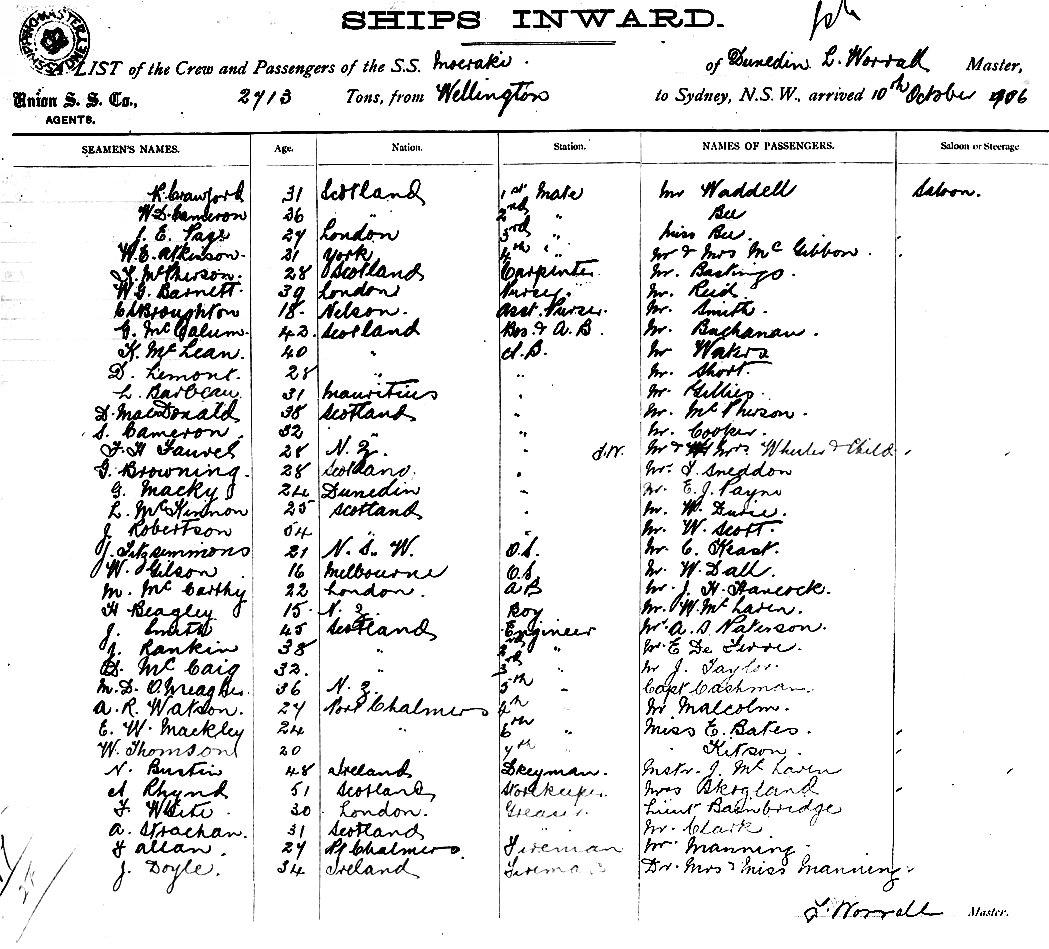 SHIPS INWARD.
LIST of the Crew and Passengers of the S.S. Moeraki. of Dunedin L. Worrall Master,
Union S. S. Co., 2713 Tons, from Wellington to Sydney, N.S.W., arrived 10th October 1906
AGENTS.
SEAMEN'S NAMES. Age. Nation. Station. NAMES OF PASSENGERS. Saloon or Steerage
R. Crawford 31 Scotland 1st Mate Mr Waddell Saloon.
W. D. Cameron 36 " 2nd " Bee
J. E. Page 29 London 3rd " Miss Bee.
W. E. Atkinson. 21 York 4th " Mr & Mrs McGibbon.
McPherson. 28 Scotland Carpenter. Mr. Bastings.
W. G. Barnett. 39 London Purser. Mr. Reid
Broughton 18. Nelson. Asst. Purser. Mr. Smith.
G. McCalum. 42. Scotland Bos. & A.B. Mr. Buchanan.
K. McLean. 40 " A.B. Mr Waters
D. Lemont. 28 " " Mr. Short.
L. Barbeau. 31 Mauritius " Mr. Gillies.
D. MacDonald 38 Scotland " Mr. McPherson.
S. Cameron. 32 " " Mr. Cooker.
28 N. Z. " Mr & Mrs Wheeler & Child
G. Browning. 28 Scotland. " Mr. Sneddon
G. Macky 24 Dunedin " Mr. E. J. Payne
L. McKinnon 25 Scotland " Mr. W. Durie.
J Robertson 54 " " Mr. W. Scott.
J. Fitzsimmons 21 N. S. W. O.S. Mr. C. Keast.
W. Gilson 16 Melbourne O.S. Mr. W. Dall.
M. McCarthy 22 London. A B Mr. J. H. Hancock.
H Beagley 15. N. Z. Boy Mr. W. McLaren.
J. Smith 45 Scotland Engineer Mr. A. S Paterson.
J. Rankin 38 " 2nd " Mr. E De
D. McCaig 32. " 3rd " Mr J. Taylor.
M. D. O'Meagher. 36 N. Z. 5th " Capt Cashman.
A. R. Watson. 29 Port Chalmers 4th " Mr Malcolm.
E. W. Mackley 24 " 6th " Miss E. Bates.
W. Thomson 20 " 7th " " Kitson.
N. Bustin 48 Ireland Dkeyman. Mstr. J. McLaren
A Rhynd 51 Scotland Storekeeper. Mrs Skogland
F White. 30 London. Greaser. Lieut Bainbridge
A. Strachan. 31 Scotland " Mr. Clark
F Allan. 29 Pt Chalmers. Fireman Mr. Manning.
J. Doyle. 34 Ireland Fireman Dr. Mrs & Miss Manning.
L. Worrall Master.